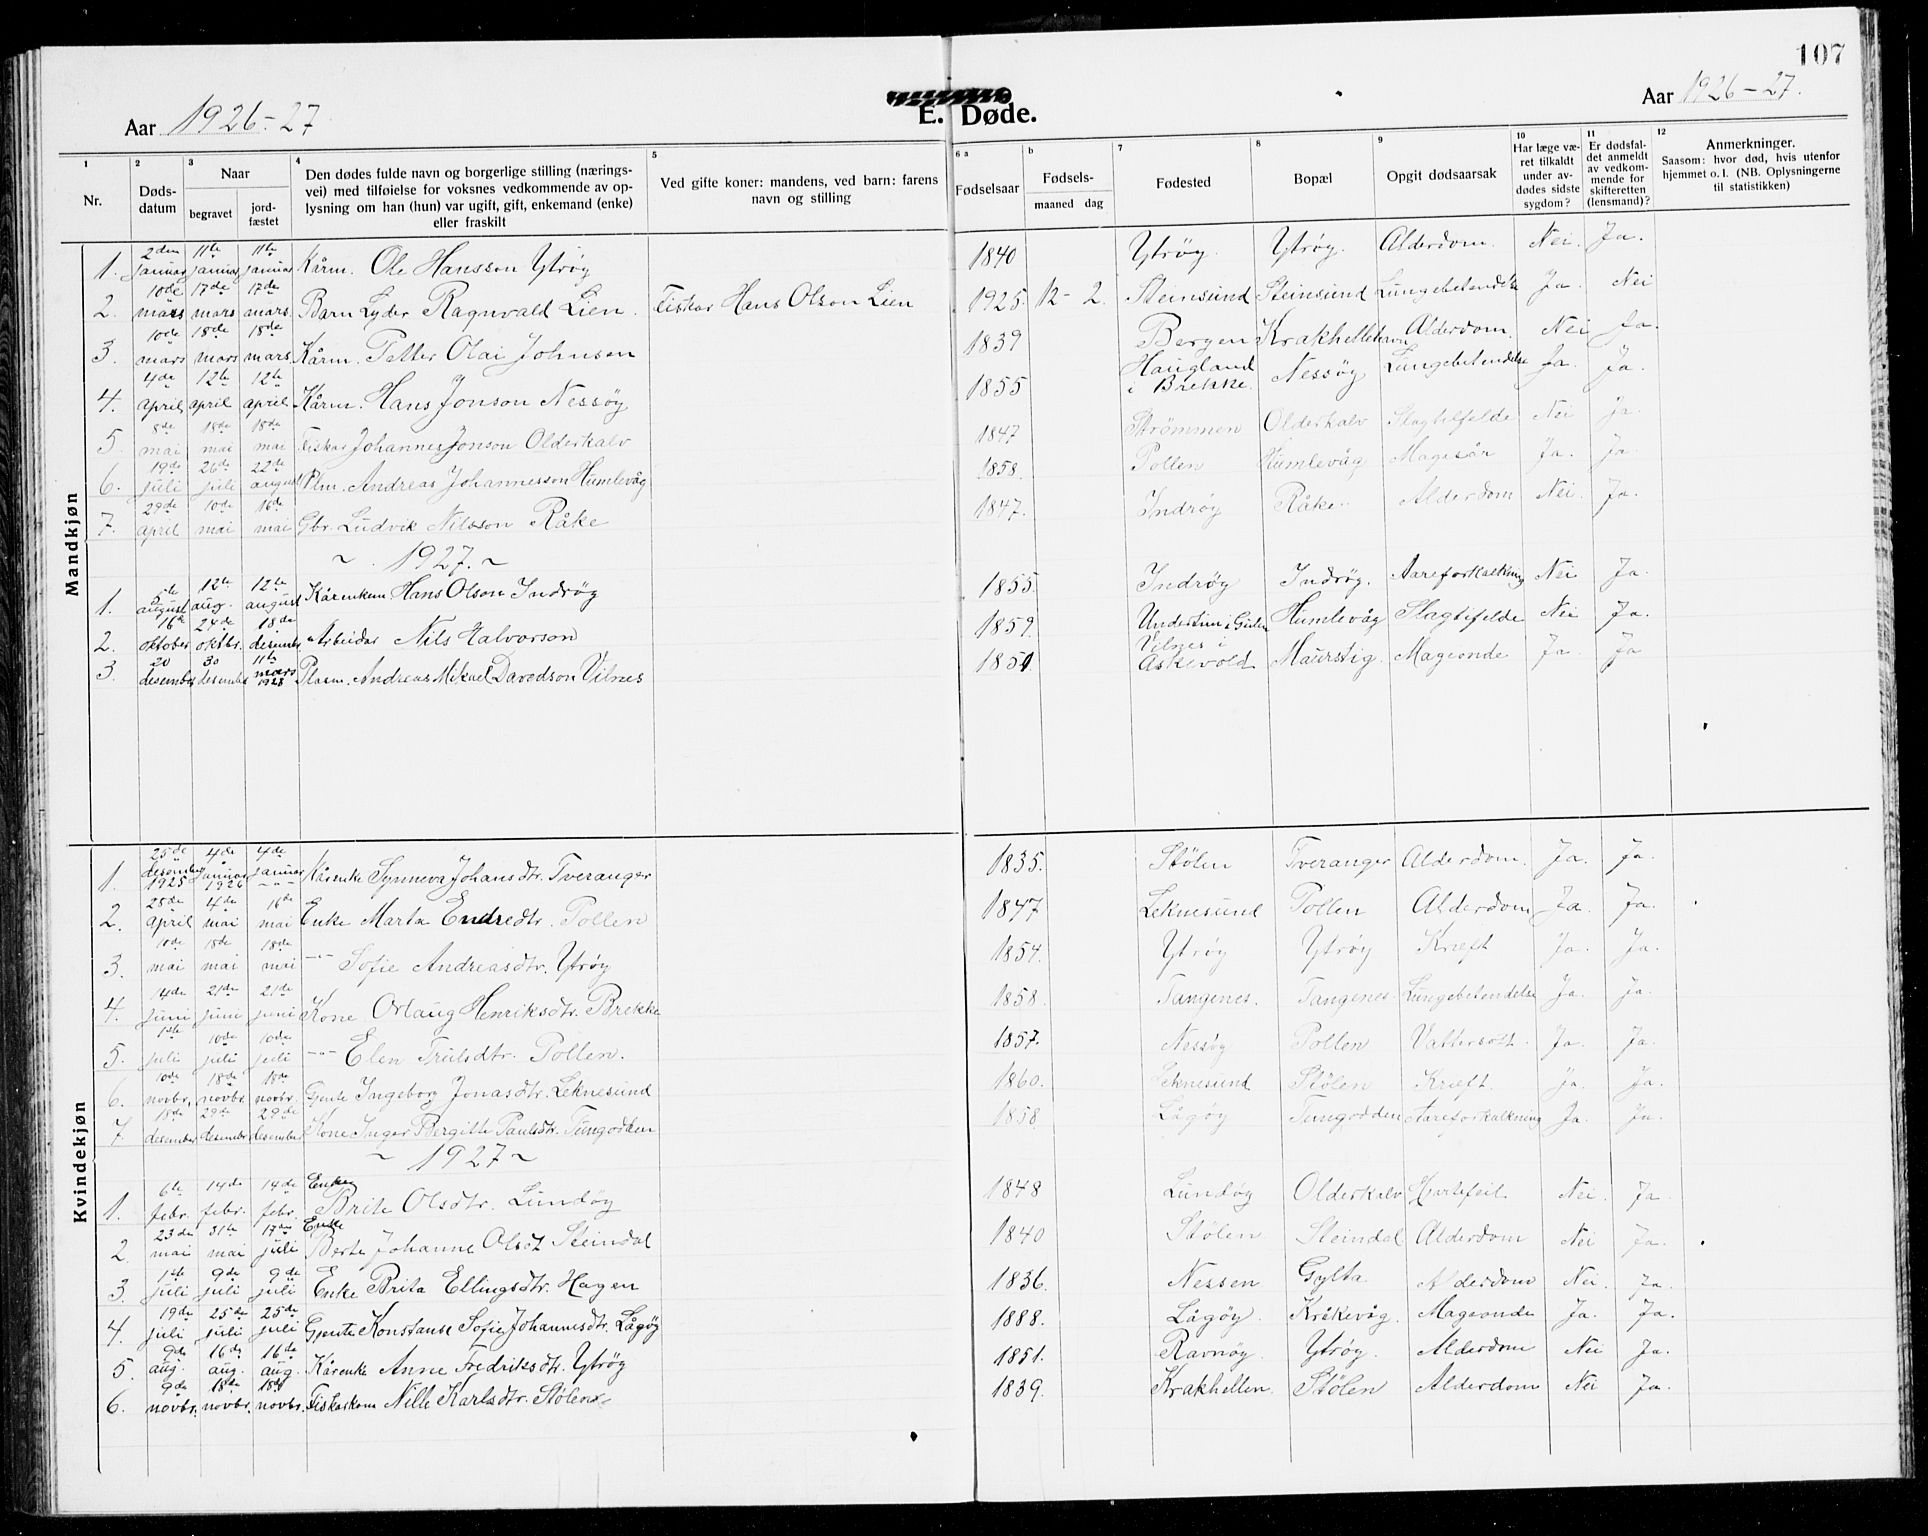 107
Aar 1926-27
E. Døde.
Aar 1926-27.
1 Nr.
2 Dødsdatum
3 Naar begravet jordfæstet
4 Den dødes fulde navn og borgerlige stilling (næringsvei) med tilføielse for voksnes vedkommende av oplysning om han (hun) var ugift, gift, enkemand (enke) eller fraskilt
5 Ved gifte koner: mandens, ved barn: farens navn og stilling
6 a Fødselsaar
b Fødsels- maaned dag
7 Fødested
8 Bopæl
9 Opgit dødsaarsak
10 Har læge været tilkaldt under avdødes sidste sygdom?
11 Er dødsfaldet anmeldt av vedkommende for skifteretten (lensmand)?
12 Anmerkninger. Saasom: hvor død, hvis utenfor hjemmet o. l. (NB. Oplysningerne til statistikken)
Mandkjøn
1. 2den januar 11te januar 11te januar Kårm. Ole Hansson Ytrøy 1840 Ytrøy. Ytrøy. Alderdom. Nei. Ja.
2. 10de mars 17de mars 17de mars. Barn Lyder Ragnvald Lien. Fiskar Hans Olson Lien 1925. 12 - 2. Steinsund Steinsund Lungebetendelse Ja. Nei
3. 10de mars 18de mars 18de mars. Kårm. Petter Olai Johnsen 1839 Bergen Krakhellehavn Alderdom. Nei Ja.
4. 4de april 12te april 12te april. Kårm. Hans Jonson Nessøy 1855 Haugland i Brekke. Nessøy Lungebetendelse Ja. Ja.
5. 8de mai 18de mai 18de mai Fiskar Johannes Jonson Olderkalv 1847 Strømmen Olderkalv Slagtilfelde Nei Ja.
6. 19de juli 26de juli 22de august Plm. Andreas Johannesson Humlevåg 1858. Pollen Humlevåg Magesår Ja. Ja.
7. 29de april 10de mai 16de mai Gbr. Ludvik Nilsson Råke 1847. Indrøy Råke Alderdom Nei. Ja.
~ 1927. ~
1. 5te august 12te aug. 12te august Kårenkem Hans Olson Indrøy 1855. Indrøy Indrøy. Aareforkalkning Nei Ja.
2. 16de oktober 24de oktbr. 18de desember Arbeidar Nils Halvorson 1859. Undertun i Gulen Humlevåg Slagtifelde Nei Ja.
3. 20 desember 30 desember 11te mars 1928 Plasm. Andreas Mikael Davidson Vilnes 1851 Vilnes i Askevold Maurstig. Mageonde Ja. Ja
Kvindekjøn
1. 25de desember 1925 4de januar 1926 4de januar -"- Kårenke Synneva Johansdtr. Tveranger 1835. Stølen Tveranger Alderdom. Ja. Ja.
2. 28de april 4de mai 16de mai Enke Marta Endredtr. Pollen 1847 Leknesund Pollen Alderdom Ja. Ja.
3. 10de mai 18de mai 18de mai -"- Sofie Andreasdtr. Ytrøy 1854. Ytrøy Ytrøy Kreft Ja. Ja.
4. 14de juni 21de juni 21de juni Kone Orlaug Henriksdtr. Brekke 1858. Tangenes. Tangenes. Lungebetendelse Ja. Ja.
5. 1ste juli 10de juli 10de juli -"- Elen Trulsdtr. Pollen. 1857. Nessøy Pollen Vattersott. Ja. Ja.
6. 10de novbr. 18de novbr. 18de novbr. Gjente Ingeborg Jonasdtr. Leknesund 1860. Leknesund Stølen Kreft. Ja. Ja.
7. 18de desember 29de desember 29de desember Kone Inger Bergitte Paulsdtr. Tungodden 1858. Lågøy Tungodden Aareforkalkning Ja. Ja.
~ 1927 ~
1. 6te febr. 14de febr. 14de febr. Enke Brite Olsdtr. Lundøy 1848 Lundøy Olderkalv Hartefeil. Nei. Ja.
2. 23de mai 31te mai 17de juli Enke Berte Johanne Olsdt Steindal 1840 Stølen Steindal Alderdom Nei Ja.
3. 1ste juli 9de juli 9de juli Enke Brita Ellingsdtr. Hagen 1836. Nessen Gylta Alderdom Nei. Ja.
4. 19de juli 25de juli 25de juli Gjente Konstanse Sofie Johannesdtr. Lågøy 1888. Lågøy. Kråkevåg. Mageonde Ja. Ja.
5. 9de aug. 16de aug. 16de aug. Kårenke Anne Fredriksdtr. Ytrøy 1851. Ravnøy. Ytrøy. Alderdom Nei Ja.
6. 9de novbr. 18de novbr. 18de novbr. Fiskarkone Nille Karlsdtr. Stølen 1839. Krakhellen. Stølen Alderdom Nei Ja.